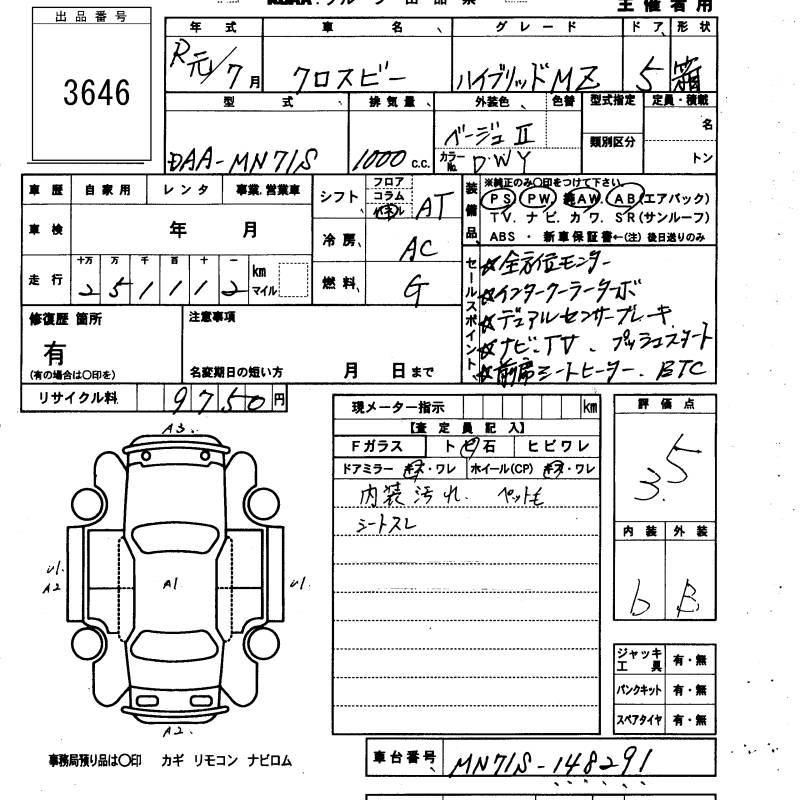 主催者用
出品番号
3646
年式 車名 グレード ドア 形状
R元/7月 クロスビー ハイブリッドMZ 5 箱
型式 排気量 外装色 色替 型式指定 定員・積載
類別区分
DAA-MN71S 1000c.c. ベージュⅡ 名
カラーNo. DWY トン
車歴 自家用 レンタ 事業.営業車
車検 年 月
走行 十万 万 千 百 十 一 km マイル
2 5 1 1 1 2
シフト フロア コラム AT
冷房 AC
燃料 G
装備品 ※純正のみ○印をつけて下さい
PS PW AW AB(エアバック)
TV. ナビ. カワ. SR(サンルーフ)
ABS ・ 新車保証書←(注) 後日送りのみ
セールスポイント
☆全方位モニター
☆インタークーラーターボ
☆デュアルセンサーブレーキ
☆ナビ.TV、プッシュスタート
☆前席シートヒーター. ETC
修復歴 箇所
有
(有の場合は○印を)
注意事項
名変期日の短い方 月 日まで
リサイクル料 9750円
現メーター指示 km
【査定員記入】
Fガラス トビ石 ヒビワレ
ドアミラー キズ・ワレ ホイール(CP) キズ・ワレ
内装汚れ. ペット毛
シートスレ
評価点
3.5
内装 外装
b B
ジャッキ工具 有・無
パンクキット 有・無
スペアタイヤ 有・無
A3
U1. A2
A1
U1.
A2
事務局預り品は○印 カギ リモコン ナビロム
車台番号 MN71S-148291